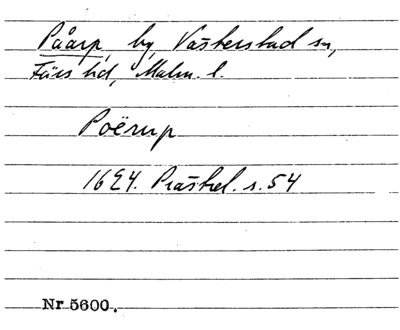 Påarp, by, Västerstad sn,
Färs hd, Malm. l.
Poërup
1624. Prästrel. s. 54
Nr 5600.